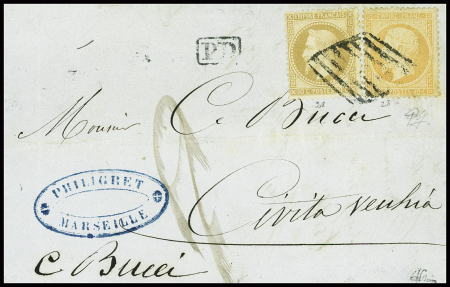 PD
EMPIRE FRANÇAIS
Monsieur C. Bucci
PHILIGRET
MARSEILLE
Civita vechia
C Bucci